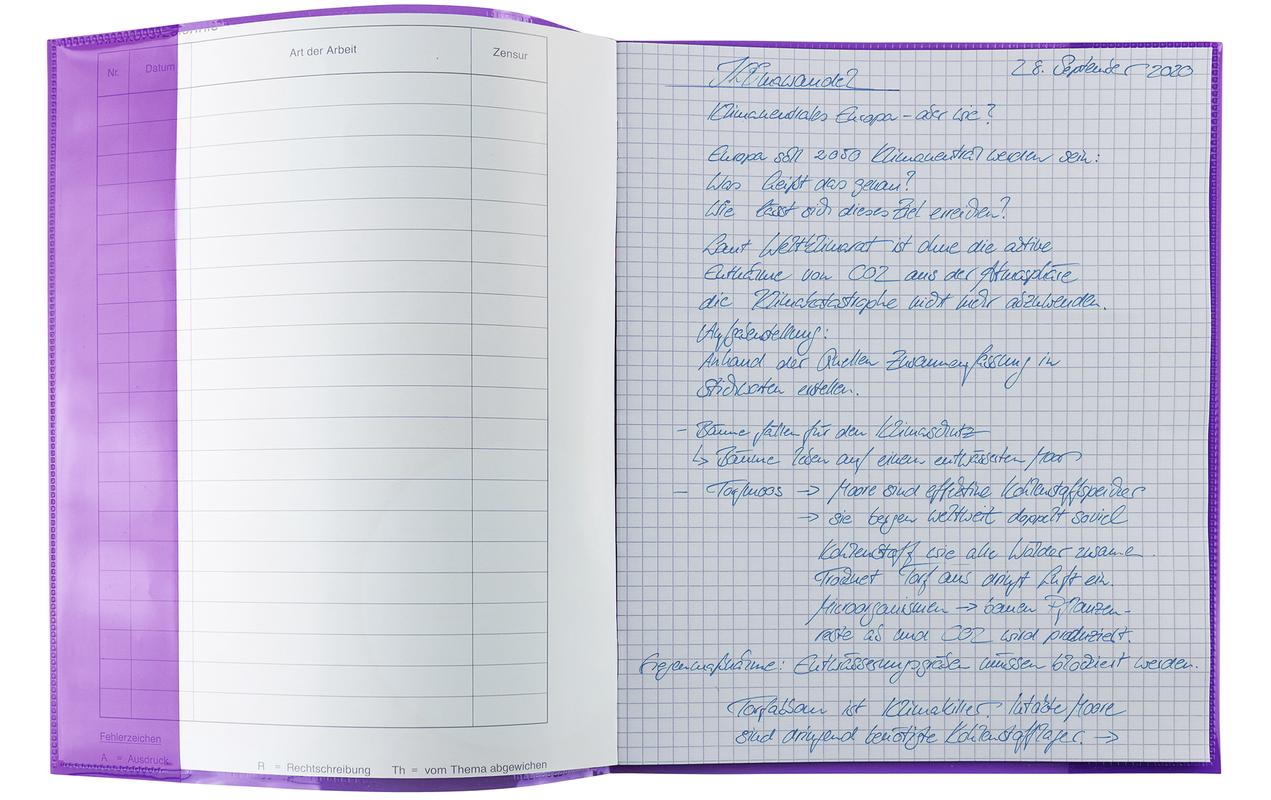 Nr.
Datum
Art der Arbeit
Zensur
Fehlerzeichen
A = Ausdruck
R = Rechtschreibung Th = vom Thema abgewichen
28. September 2020
Klimawandel
Klimaneutrales Europa - aber wie?
Europa soll 2050 Klimaneutral werden sein:
Was heißt das genau?
Wie lässt sich dieses Ziel erreichen?
Laut Weltklimarat ist ohne die aktive
Entnahme von CO2 aus der Atmosphäre
die Klimakatastrophe nicht mehr abzuwenden.
Aufgabenstellung:
Anhand der Quellen Zusammenfassung in
Stichworten erstellen.
- Bäume fällen für den Klimaschutz
↳ Bäume leben auf einem entwässerten Moor
- Torfmoos → Moore sind effektive Kohlenstoffspeicher
→ sie bergen weltweit doppelt soviel
Kohlenstoff wie alle Wälder zusammen.
Trocknet Torf aus dringt Luft ein.
Mikroorganismen → bauen Pflanzen-
reste ab und CO2 wird produziert.
Gegenmaßnahme: Entwässerungsgräben müssen blockiert werden.
Torfabbau ist Klimakiller. Intakte Moore
sind dringend benötigte Kohlenstofflager. →